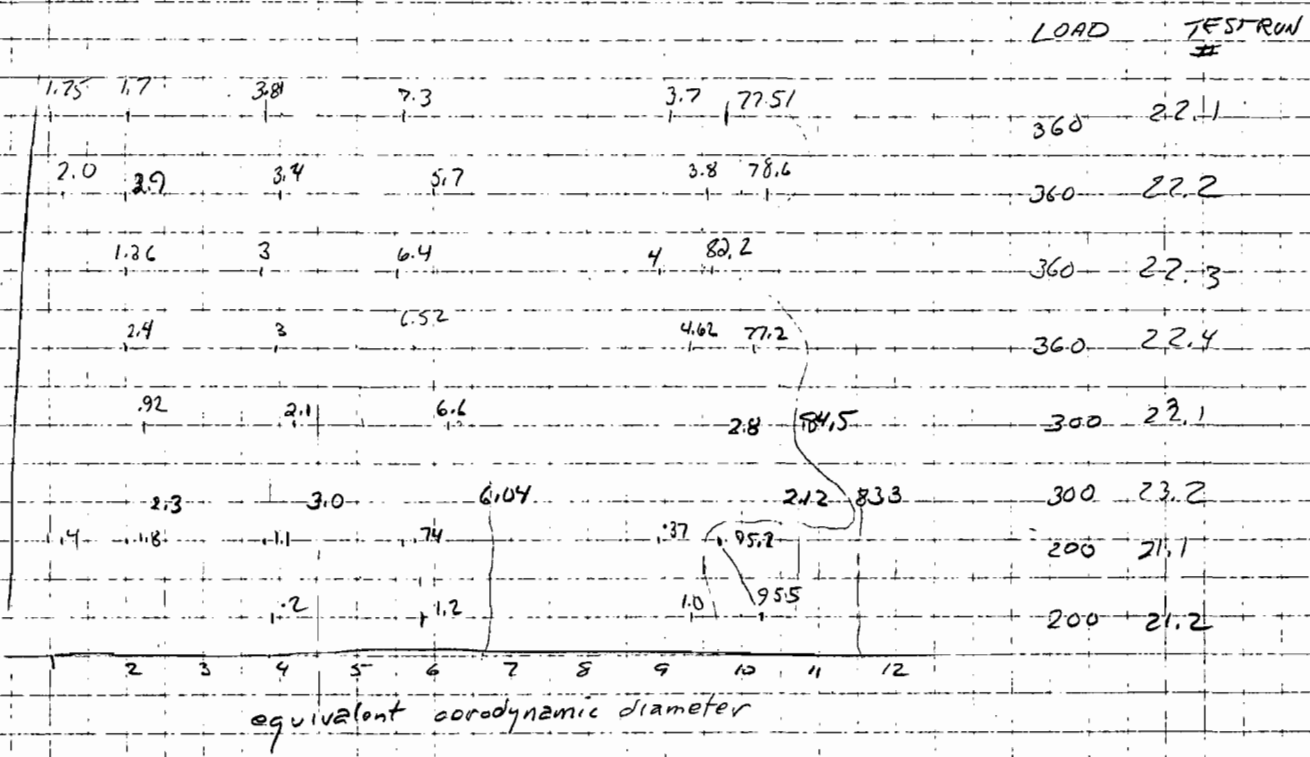 LOAD TESTRUN
#
1.75 1.7 3.8 7.3 3.7 77.51 360 22.1
2.0 2.9 3.4 5.7 3.8 78.6 360 22.2
1.26 3 6.4 4 82.2 360 22.3
2.4 3 6.52 4.62 77.2 360 22.4
.92 2.1 6.6 2.8 84.5 300
2.3 3.0 6.04 2.12 833 300 23.2
.4 1.8 1.1 .74 .37 95.2 200 21.1
.2 1.2 1.0 955 200 21.2
2 3 4 5 6 7 8 9 10 11 12
equivalent aerodynamic diameter